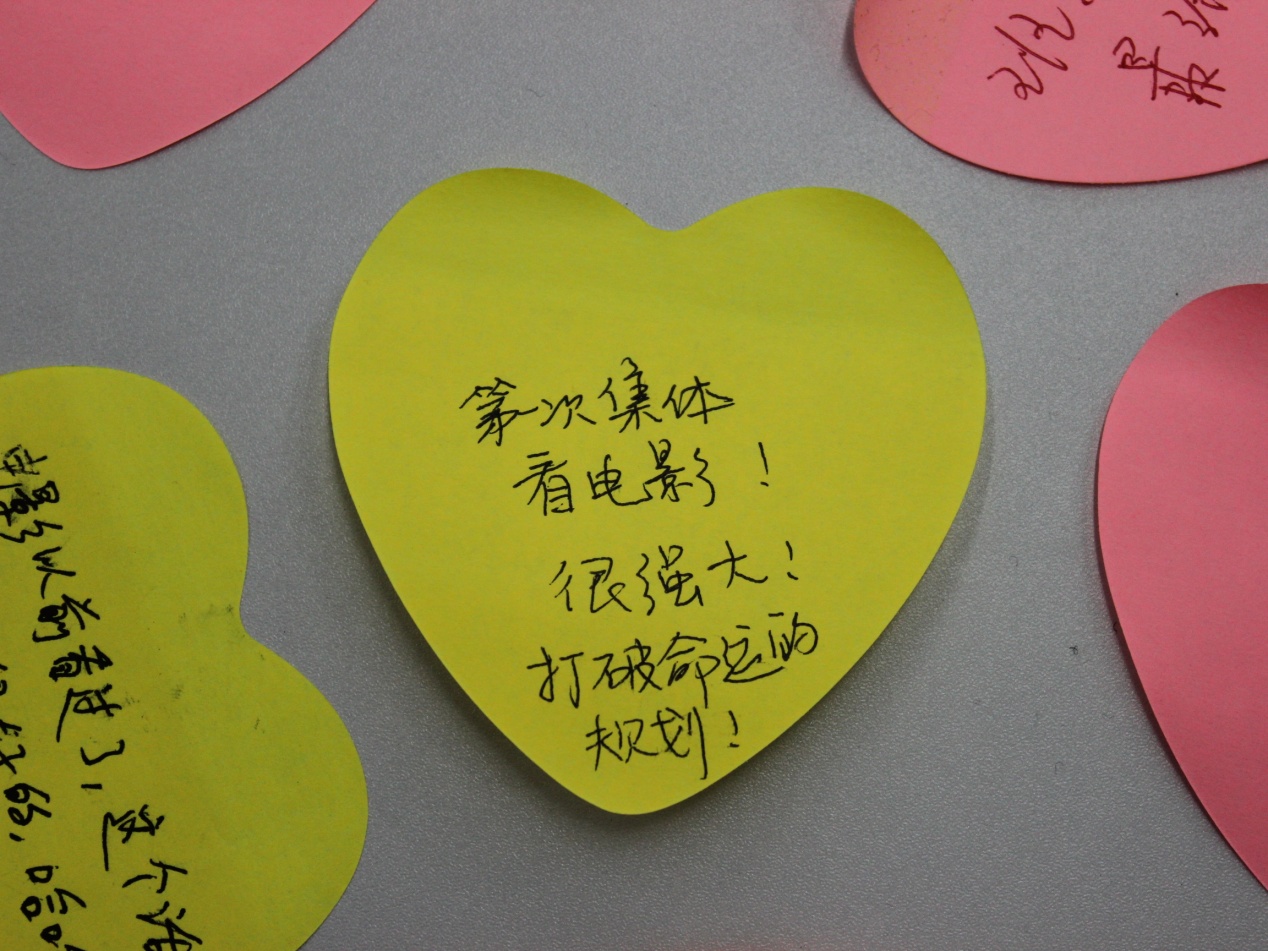 第一次集体
看电影！
很强大！
打破命运的
规划！
电影以前看过了，
这个